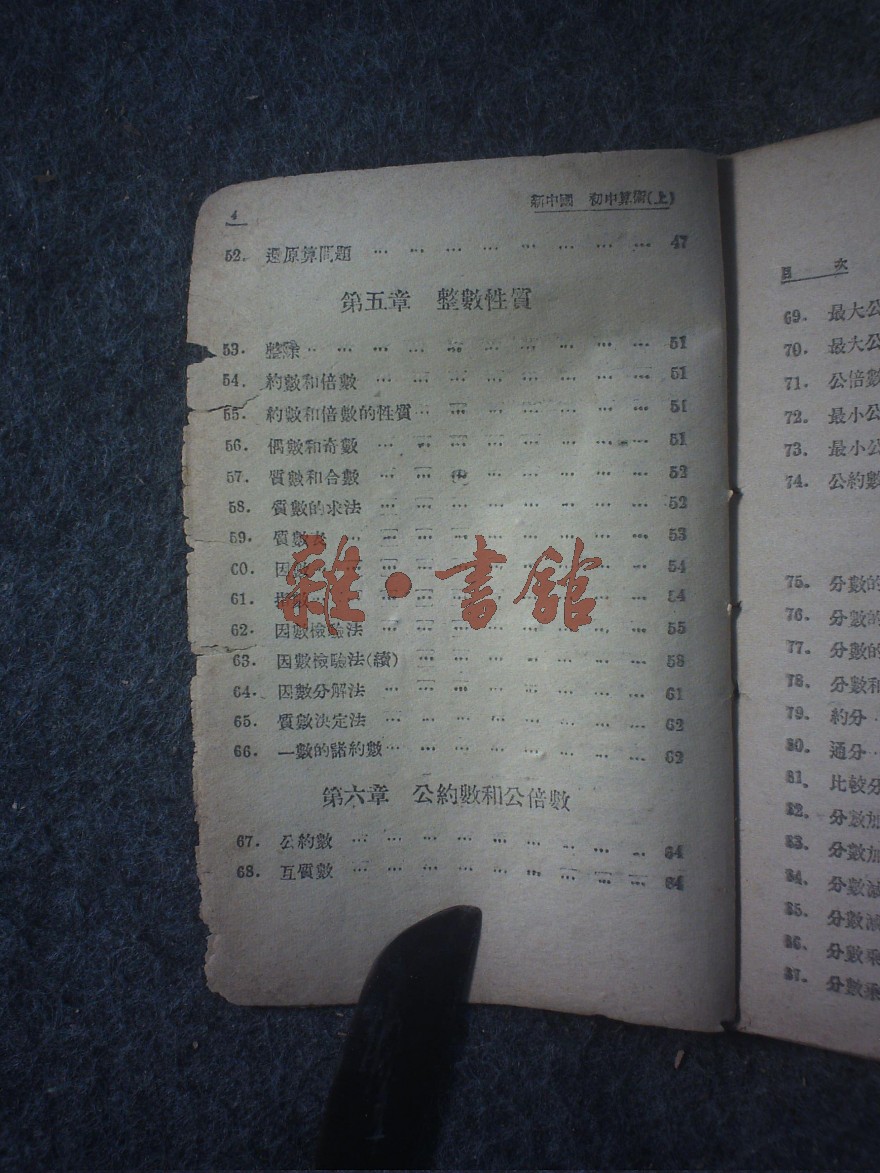 4
新中國 初中算術(上)
52. 還原算問題 … … … … … … … … … 47
第五章 整數性質
53. 整除 … … … … … … … … … … 51
54. 約數和倍數 … … … … … … … … 51
55. 約數和倍數的性質 … … … … … … … 51
56. 偶數和奇數 … … … … … … … … 51
57. 質數和合數 … … … … … … … … 52
58. 質數的求法 … … … … … … … … 52
59. 質數表 … … … … … … … … … 53
60. 因數 … … … … … … … … … 54
61. 指數 … … … … … … … … … 54
62. 因數檢驗法 … … … … … … … … 55
63. 因數檢驗法(續) … … … … … … … 58
64. 因數分解法 … … … … … … … … 61
65. 質數決定法 … … … … … … … … 62
66. 一數的諸約數 … … … … … … … … 62
第六章 公約數和公倍數
67. 公約數 … … … … … … … … … 64
68. 互質數 … … … … … … … … … 64
雜·書館
目 次
69. 最大公
70. 最大公
71. 公倍數
72. 最小公
73. 最小公
74. 公約數
75. 分數的
76. 分數的
77. 分數的
78. 分數和
79. 約分
80. 通分
81. 比較分
82. 分數加
83. 分數加
84. 分數減
85. 分數減
86. 分數乘
87. 分數乘